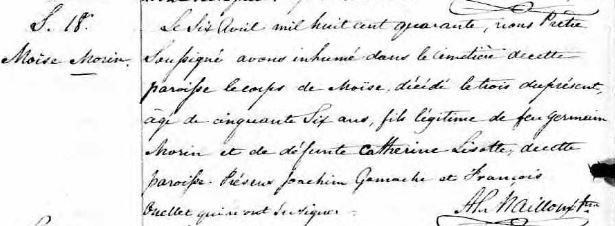 S. 18e
Moïse Morin.
Le Six Avril mil huit cent quarante, nous Prêtre
Soussigné avons inhumé dans le cimetière de cette
paroisse le corps de Moïse, décédé le trois du présent,
âgé de cinquante Six ans, fils légitime de feu Germain
Morin et de défunte Catherine Lisotte, de cette
paroisse. Présens Joachim Gamache et François
Ouellet qui n'ont Su signer.
Alx Mailloux Ptre